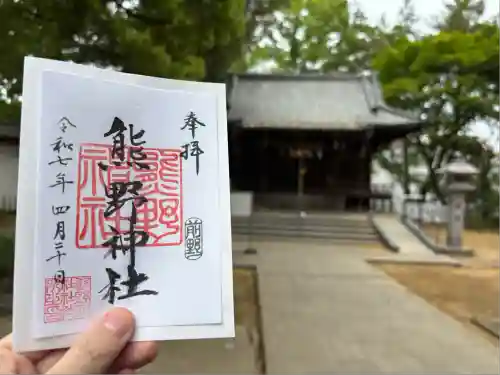 奉拝
前野
熊野神社
熊野神社
令和七年四月二十日